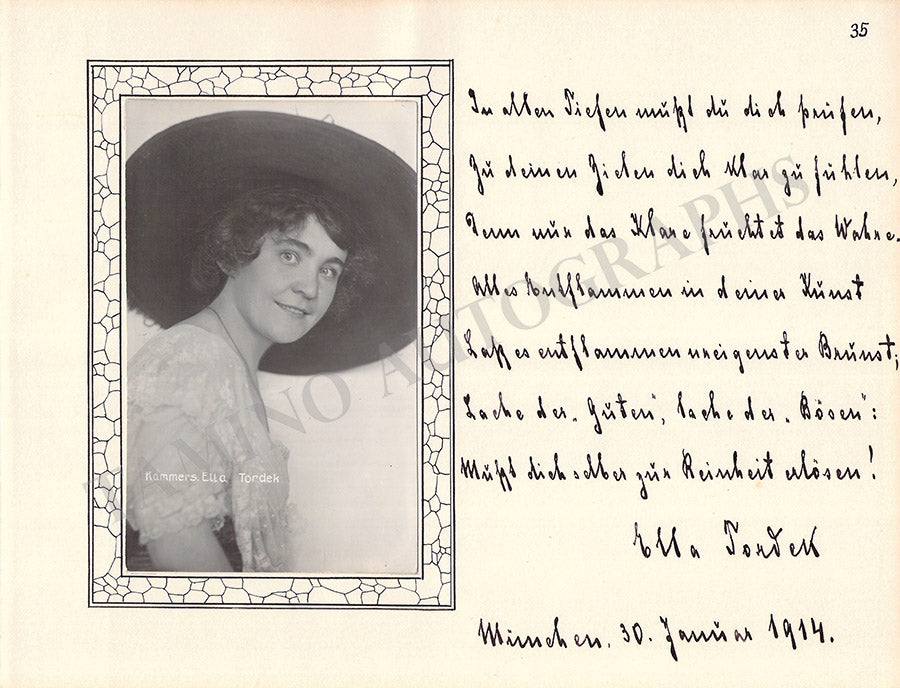 35
In allen Tiefen mußt du dich prüfen,
Zu deinen Zielen dich klar zu fühlen,
Denn nur das Klare früchtet das Wahre.
Alles Entflammen in deiner Kunst
Laß es entflammen ureigenster Brunst;
Lache der „Guten", lache der „Bösen":
Mußt dich selber zur Reinheit erlösen!
Ella Tordek
München, 30. Januar 1914.
Kammers. Ella Tordek
TAMINO AUTOGRAPHS